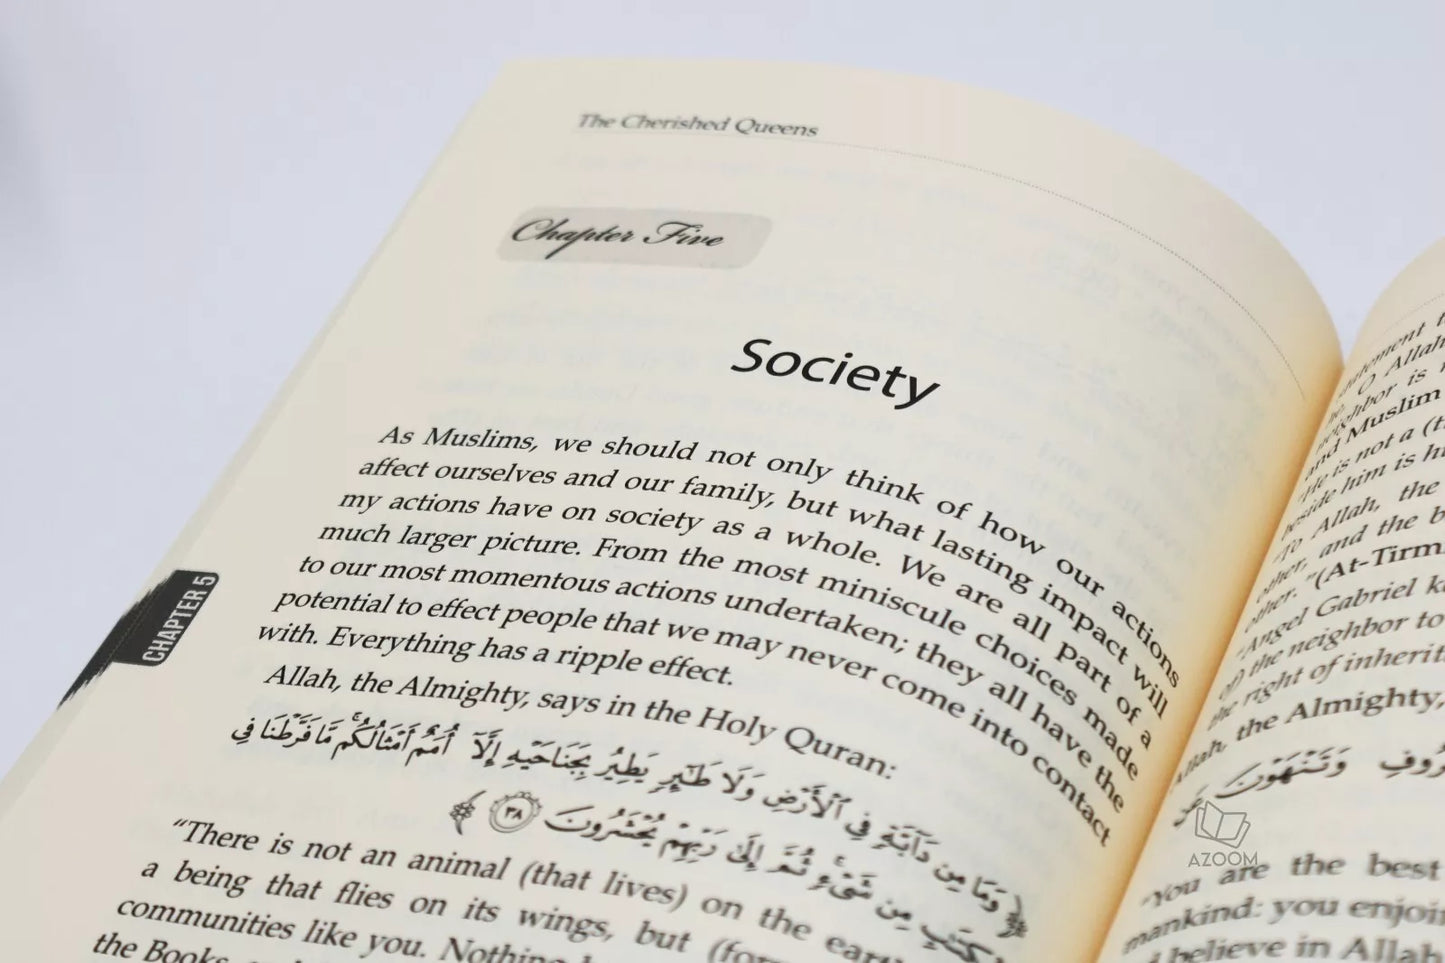 The Cherished Queens
Chapter Five
Society
As Muslims, we should not only think of how our actions
affect ourselves and our family, but what lasting impact will
my actions have on society as a whole. We are all part of a
much larger picture. From the most miniscule choices made
to our most momentous actions undertaken; they all have the
potential to effect people that we may never come into contact
with. Everything has a ripple effect.
Allah, the Almighty, says in the Holy Quran:
﴿ وَمَا مِن دَآبَّةٍ فِي ٱلْأَرْضِ وَلَا طَٰٓئِرٍ يَطِيرُ بِجَنَاحَيْهِ إِلَّآ أُمَمٌ أَمْثَالُكُم ۚ مَّا فَرَّطْنَا فِي
ٱلْكِتَٰبِ مِن شَىْءٍ ۚ ثُمَّ إِلَىٰ رَبِّهِمْ يُحْشَرُونَ ٣٨ ﴾
"There is not an animal (that lives) on the earth
a being that flies on its wings, but
communities like you. Nothing
the Books
CHAPTER 5
statement
O Allah
neighbor is
and Muslim
"He is not a
beside him is
"To Allah, the
other, and the b
other."(At-Tirm
"Angel Gabriel k
of) the neighbor to
the right of inherit
Allah, the Almighty,
وَتَنْهَوْنَ
"You are the best
mankind: you enjoin
believe in Allah
AZOOM